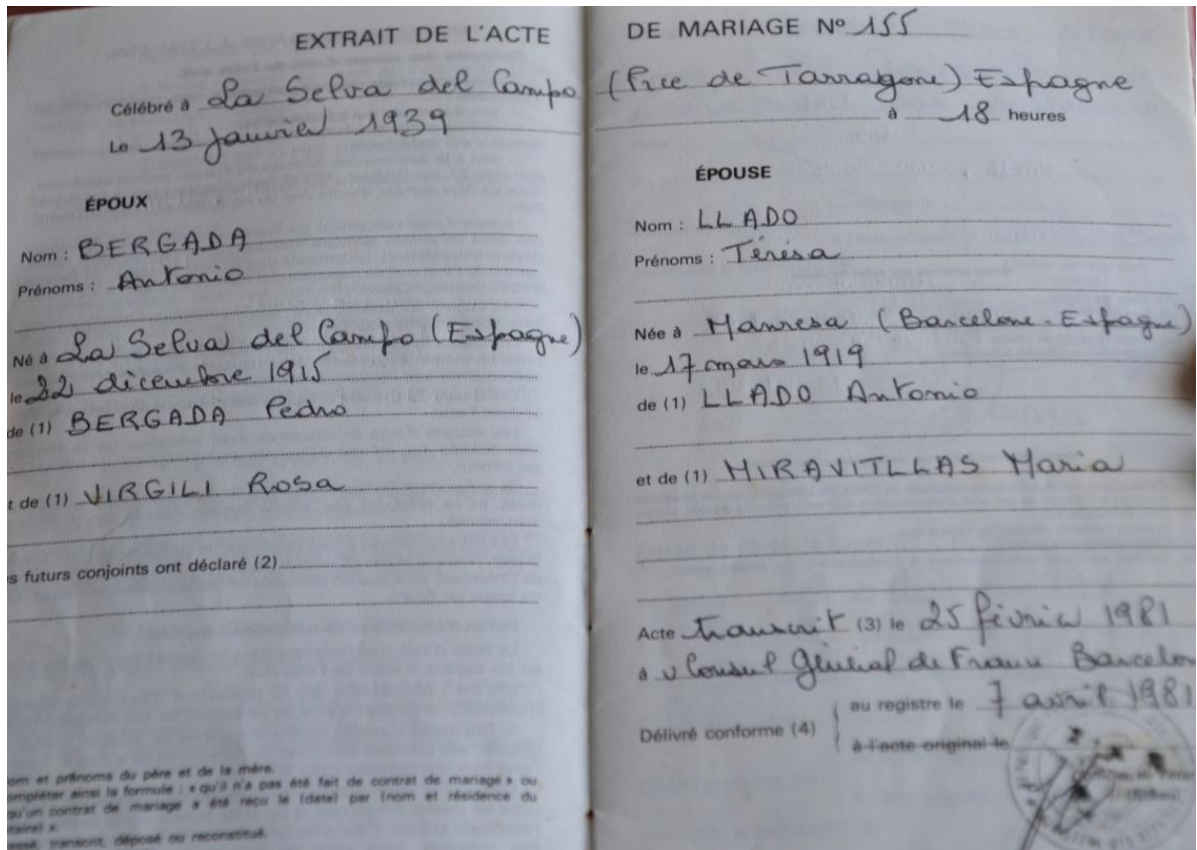 EXTRAIT DE L'ACTE
Célébré à La Selva del Campo
Le 13 janvier 1939
ÉPOUX
Nom : BERGADA
Prénoms : Antonio
Né à La Selva del Campo (Espagne)
le 22 dicembre 1915
de (1) BERGADA Pedro
t de (1) VIRGILI Rosa
s futurs conjoints ont déclaré (2)
om et prénoms du père et de la mère.
ompléter ainsi la formule : « qu'il n'a pas été fait de contrat de mariage » ou
qu'un contrat de mariage a été reçu le (date) par (nom et résidence du
taire) ».
transcrit, déposé ou reconstitué.
DE MARIAGE Nº 155
(Pce de Tarragone) Espagne
à 18 heures
ÉPOUSE
Nom : LLADO
Prénoms : Térésa
Née à Manresa (Barcelone - Espagne)
le 17 mars 1919
de (1) LLADO Antonio
et de (1) MIRAVITLLAS Maria
Acte transcrit (3) le 25 février 1981
à Consul Général de France Barcelon
Délivré conforme (4)
au registre le 7 avril 1981
à l'acte original le